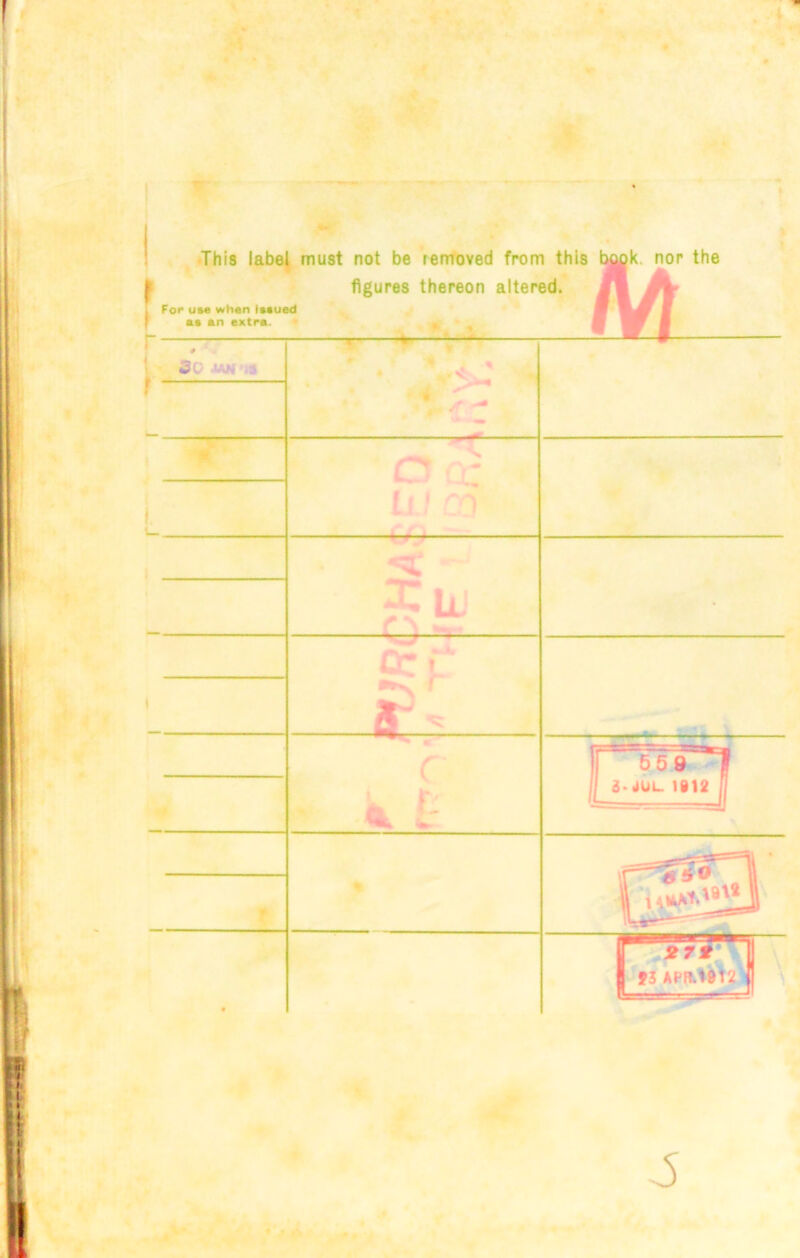 This label must not be removed from this book. nor the
figures thereon altered.
M
For use when issued
as an extra.
30 JAN
PURCHASED
FROM THE LIBRARY.
559
3-JUL. 1912
650
14 MAY. 1912
272
23 APR. 1912
5